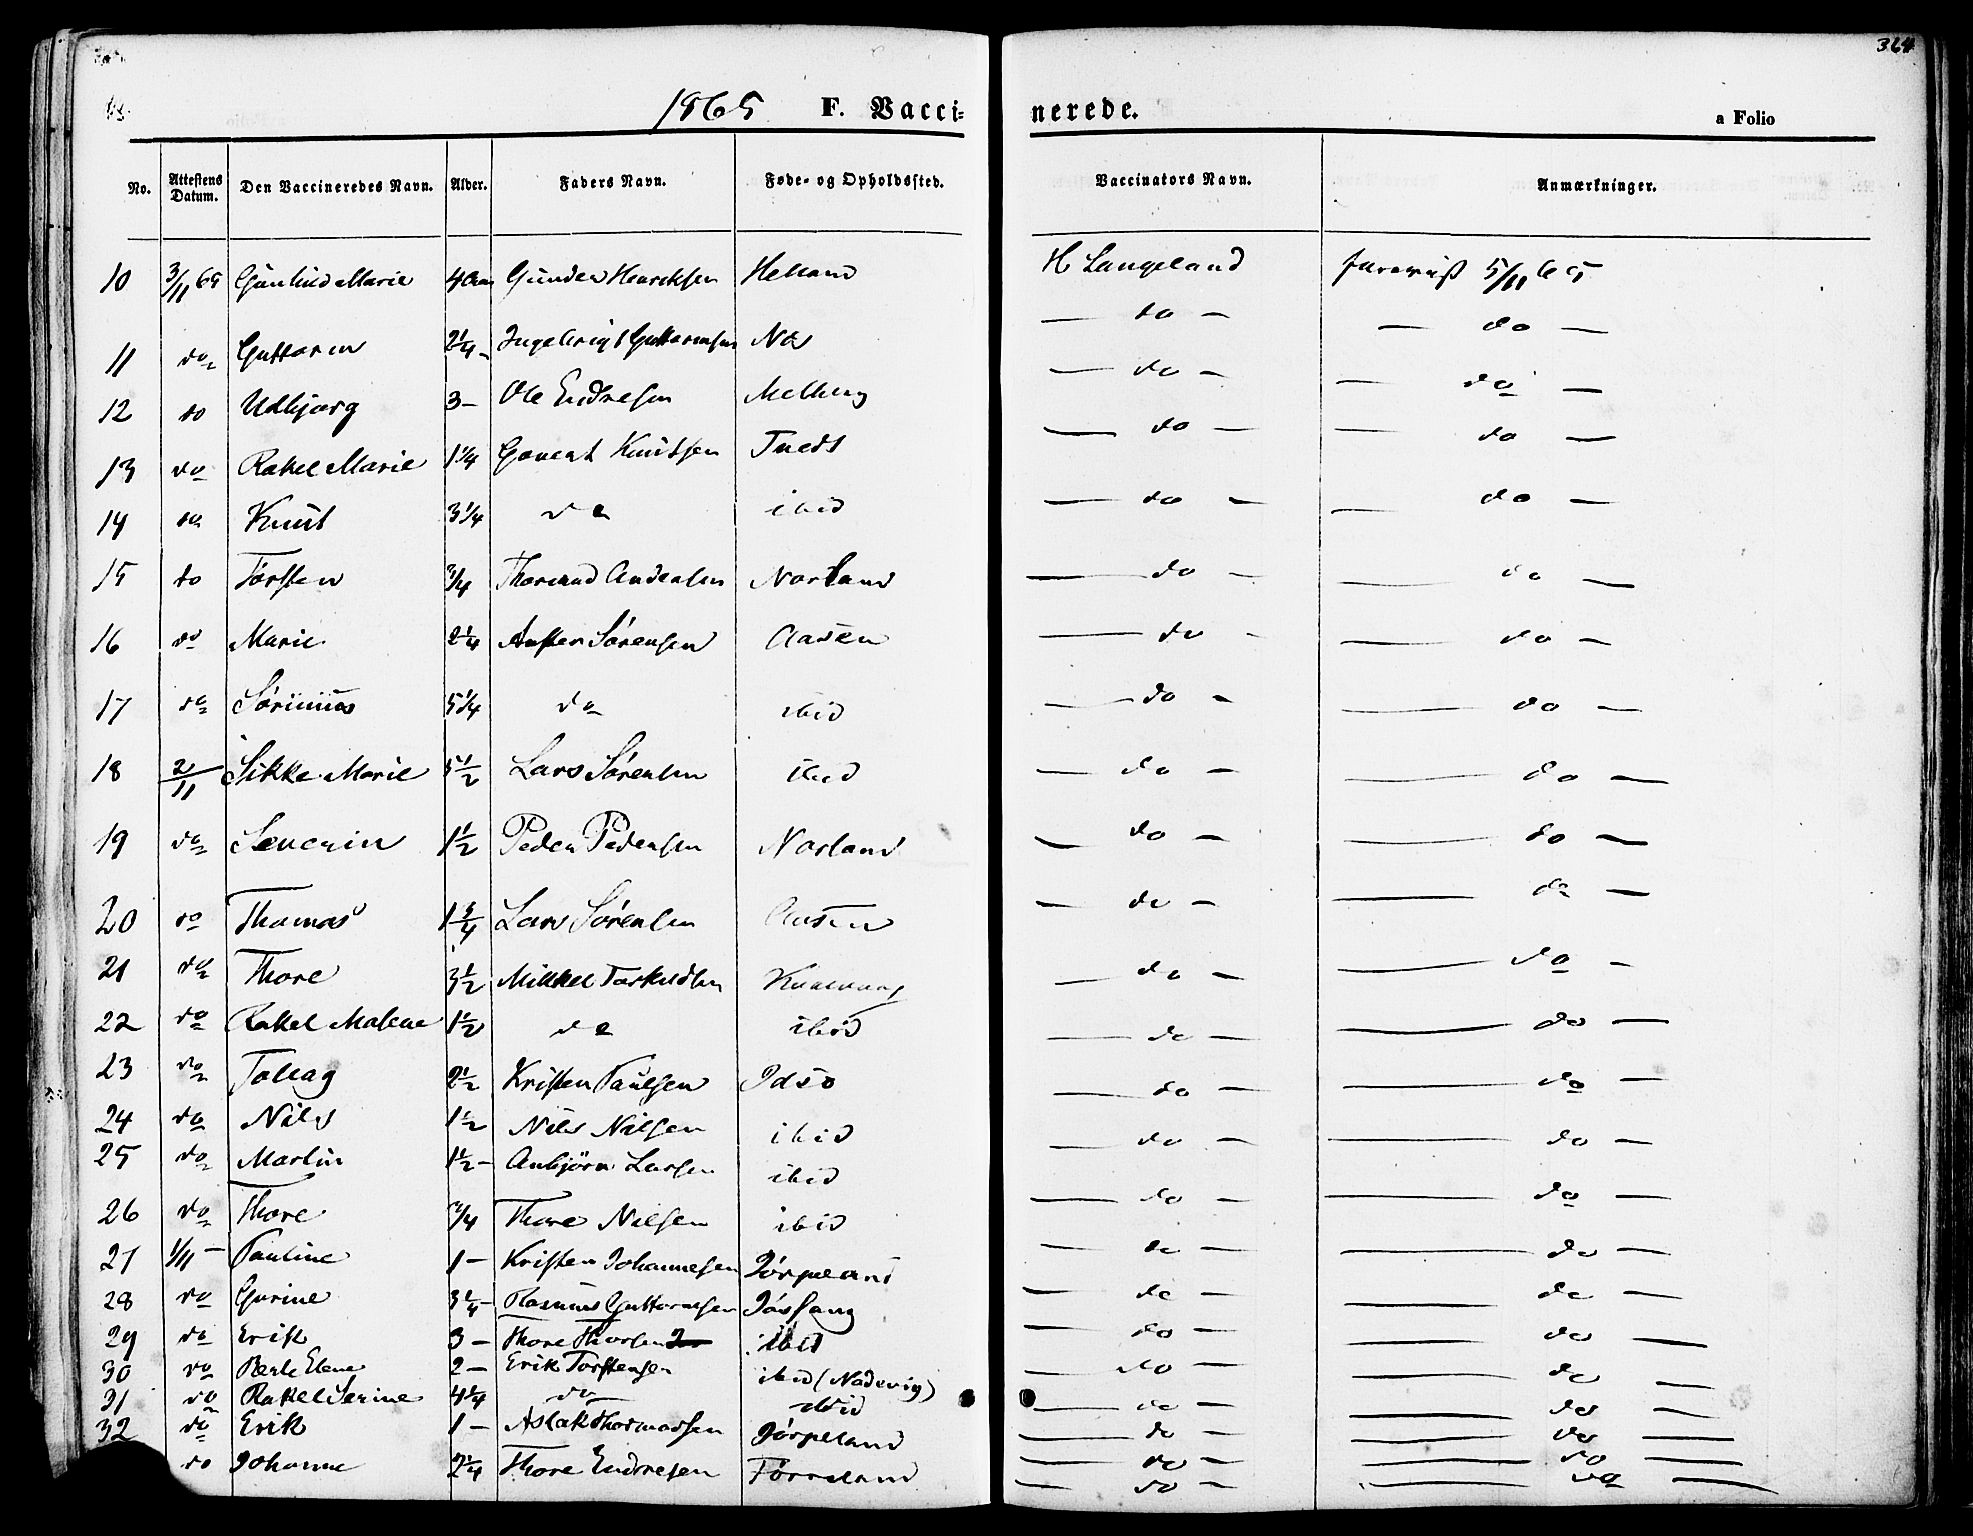 364
1865 F. Vaccinerede. a Folio
No. Attestens Datum. Den Vaccineredes Navn. Alder. Faders Navn. Føde- og Opholdssted. Vaccinators Navn. Anmærkninger.
10 3/11 65 Gunhild Marie 4 Aar Gunder Henriksen Helland H Langeland forevist 5/11 65
11 do Guttorm 2 1/4 - Ingebrigt Guttormsen Næs — do — — do —
12 do Udbjørg 3 - Ole Endresen Melberg — do — — do —
13 do Rakel Marie 1 1/4 Govert Knutsen Tvedt — do — — do —
14 do Knut 3 1/4 do ibid — do — — do —
15 do Torsten 3/4 Thormod Andersen Norland — do — — do —
16 do Marie 2 1/4 Sørensen Aasen — do — — do —
17 do Sørinius 5 1/4 do ibid — do — — do —
18 2/11 Sikke Marie 5 1/2 Lars Sørensen ibid — do — — do —
19 do Severin 1 1/2 Peder Pedersen Norland — do — — do —
20 do Thomas 1 3/4 Lars Sørensen Aasen — do — — do —
21 do Thore 3 1/2 Mikkel Torkildsen — do — — do —
22 do Rakel Malene 1 1/2 do ibid — do — — do —
23 do Tollag 2 1/2 Kristen Paulsen Idsø — do — — do —
24 do Nils 1 1/2 Nils Nilsen ibid — do — — do —
25 do Martin 1 1/2 - Anbjörn Larsen ibid — do — — do —
26 do Thore 3/4 Thore Nilsen ibid — do — — do —
27 1/11 - Pauline 1 - Kristen Johannesen Jørpeland — do — — do —
28 do Gurine 3 1/4 - Rasmus Guttormsen Jøssang — do — — do —
29 do Erik 3 - Thore Thorsen ibid — do — — do —
30 do Berte Elene 2 - Erik Torstensen ibid (Nadevig) — do — — do —
31 do Rakel Serine 4 1/4 do ibid — do — — do —
32 do Erik 1 - Aslak Thormodsen Jørpeland — do — — do —
do Johanne 2 1/4 Thore Endresen Førreland — do — — do —
— do — — do —